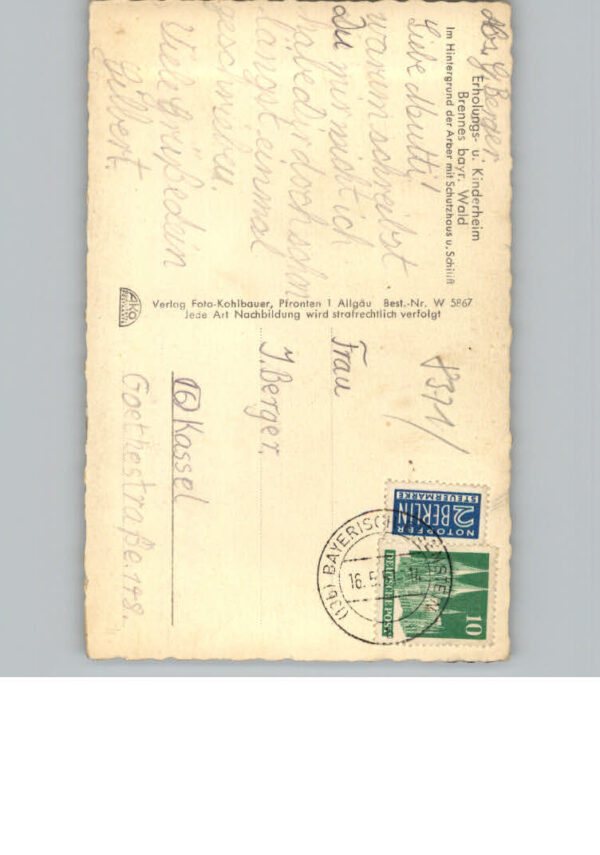 Abs. G. Berger
Erholungs- u. Kinderheim
Brennes bayr. Wald
Im Hintergrund der Arber mit Schutzhaus u. Schilift
Liebe Mutti!
warum schreibst
Du mir nicht ich
habe dir doch schon
längst einmal
geschrieben.
Viele Grüße dein
Gilbert.
Verlag Foto-Kohlbauer, Pfronten 1 Allgäu Best.-Nr. W 5867
Jede Art Nachbildung wird strafrechtlich verfolgt
8371/
NOTOPFER
2 BERLIN
STEUERMARKE
10
DEUTSCHE POST
(13b) BAYERISCH EISENSTEIN
16. 5.
Frau
J. Berger.
(16) Kassel
Goethestraße. 148.